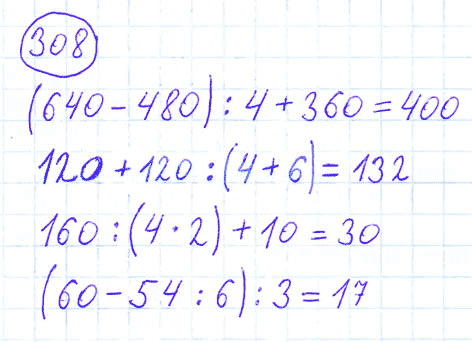 308
(640 - 480) : 4 + 360 = 400
120 + 120 : (4 + 6) = 132
160 : (4 · 2) + 10 = 30
(60 - 54 : 6) : 3 = 17